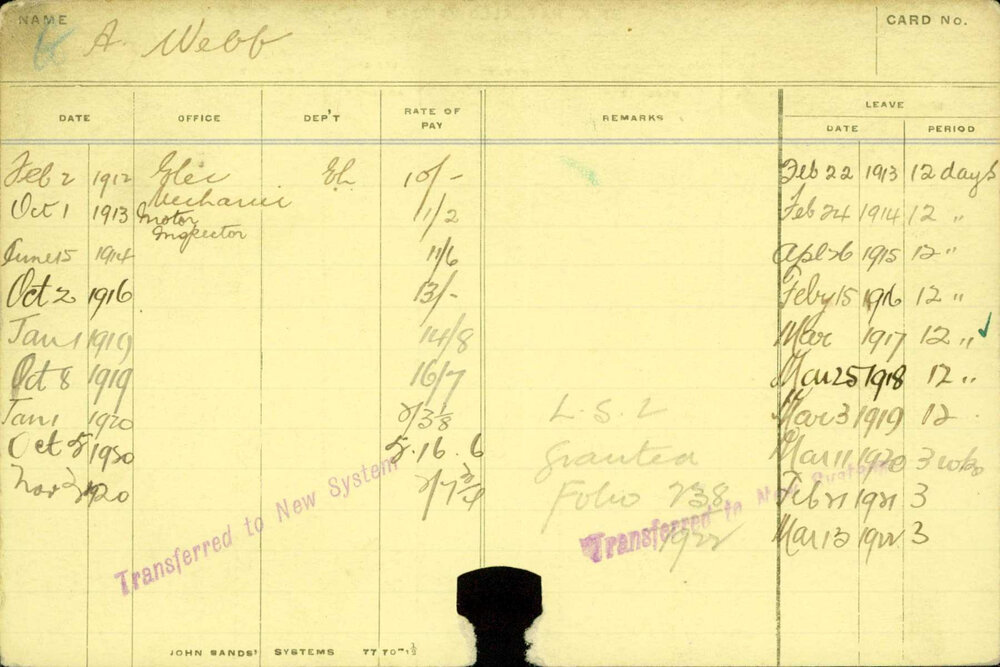 NAME
CARD No.
A. Webb
DATE OFFICE DEP'T RATE OF PAY REMARKS LEAVE
DATE PERIOD
Feb 2 1912 Elec El. 10/- Feb 22 1913 12 days
Mechanic
Oct 1 1913 Motor 11/2 Feb 24 1914 12 "
Inspector
June 15 1914 11/6 Apl 26 1915 12 "
Oct 2 1916 13/- Feby 15 1916 12 "
Jan 1 1919 14/8 Mar 1917 12 "
Oct 8 1919 16/7 Mar 25 1918 12 "
Jan 1 1920 L.S.L Mar 3 1919 12
Oct 5 1920 5.16.6 Granted Mar 11 1920 3 wks
Nov 1920 Folio 238 Feb 21 1921 3
1922 Mar 13 1922 3
Transferred to New System
Transferred to New System
JOHN SANDS' SYSTEMS